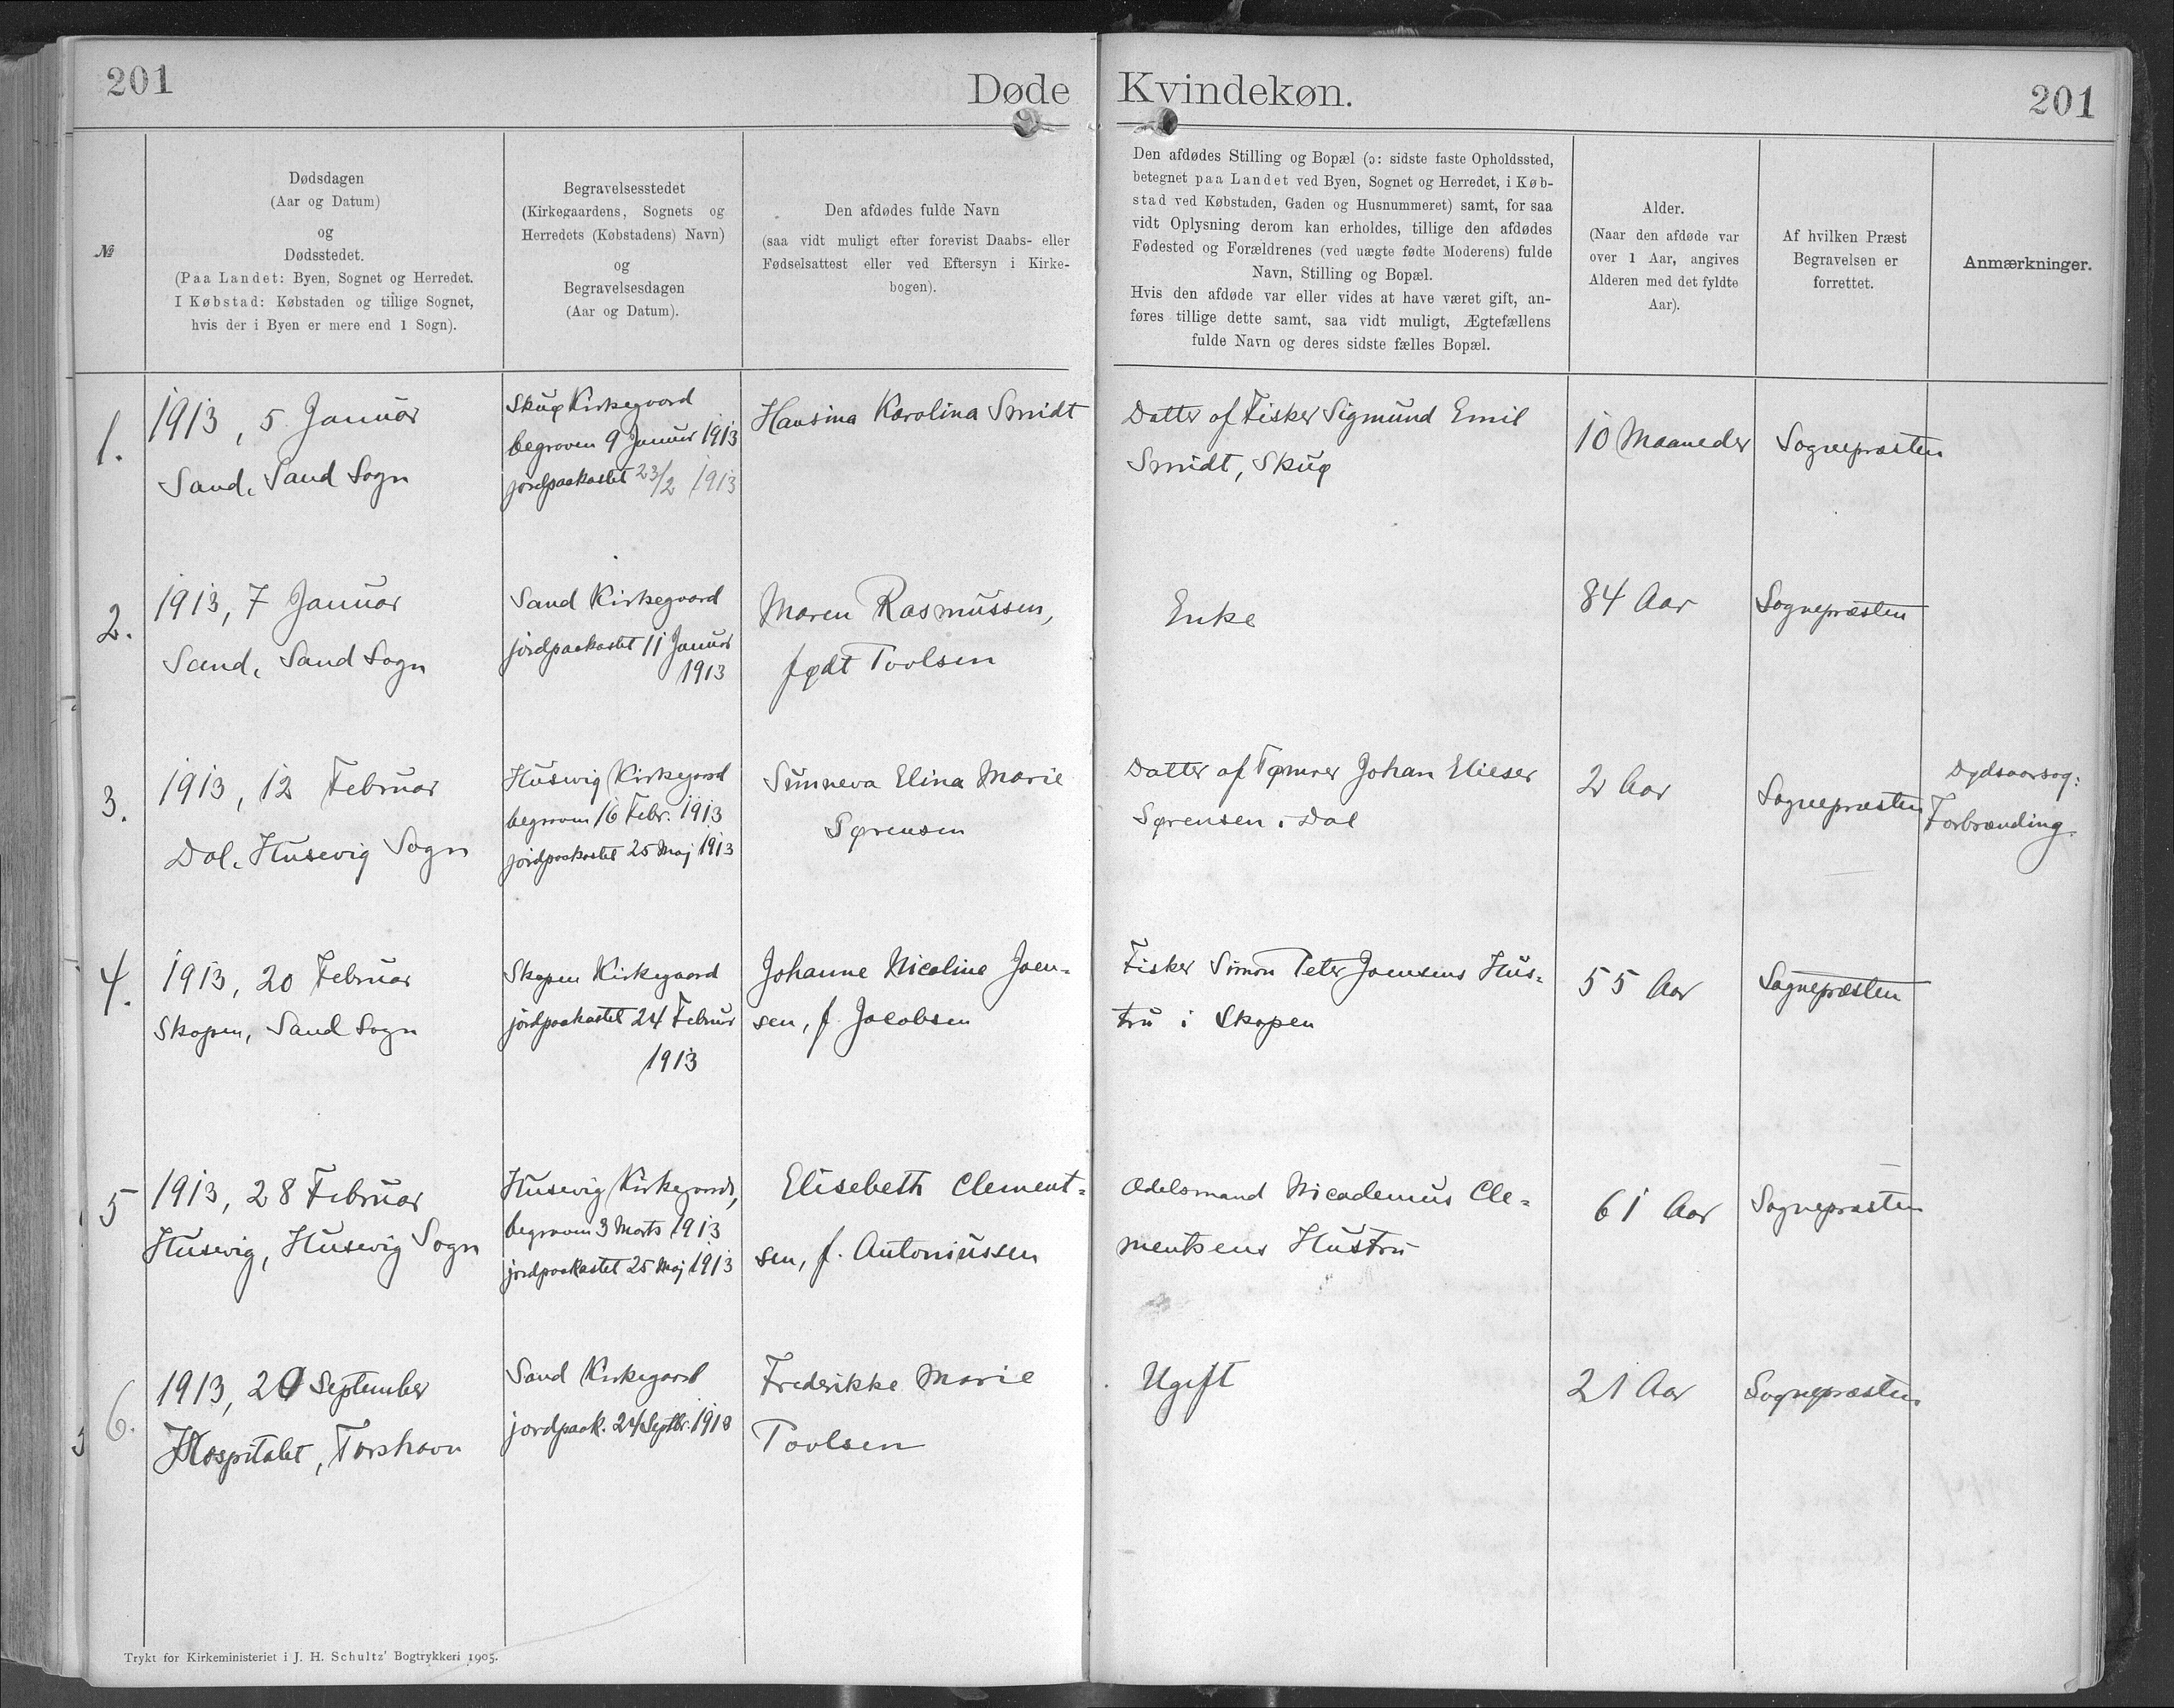 201
Døde
Kvindekøn.
201
№
Dødsdagen
(Aar og Datum)
og
Dødsstedet.
(Paa Landet: Byen, Sognet og Herredet.
I Købstad: Købstaden og tillige Sognet,
hvis der i Byen er mere end 1 Sogn).
Begravelsesstedet
(Kirkegaardens, Sognets og
Herredets (Købstadens) Navn)
og
Begravelsesdagen
(Aar og Datum).
Den afdødes fulde Navn
(saa vidt muligt efter forevist Daabs- eller
Fødselsattest eller ved Eftersyn i Kirke-
bogen).
Den afdødes Stilling og Bopæl (ɔ: sidste faste Opholdssted,
betegnet paa Landet ved Byen, Sognet og Herredet, i Køb-
stad ved Købstaden, Gaden og Husnummeret) samt, for saa
vidt Oplysning derom kan erholdes, tillige den afdødes
Fødested og Forældrenes (ved uægte fødte Moderens) fulde
Navn, Stilling og Bopæl.
Hvis den afdøde var eller vides at have været gift, an-
føres tillige dette samt, saa vidt muligt, Ægtefællens
fulde Navn og deres sidste fælles Bopæl.
Alder.
(Naar den afdøde var
over 1 Aar, angives
Alderen med det fyldte
Aar).
Af hvilken Præst
Begravelsen er
forrettet.
Anmærkninger.
1.
1913, 5 Januar
Sand, Sand Sogn
Skuø Kirkegaard
begraven 9 Januar 1913
jordpaakastet 23/2 1913
Hansina Karolina Smidt
Datter af Fisker Sigmund Emil
Smidt, Skuø
10 Maaneder
Sognepræsten
2.
1913, 7 Januar
Sand, Sand Sogn
Sand Kirkegaard
jordpaakastet 11 Januar
1913
Maren Rasmussen,
født Poulsen
Enke
84 Aar
Sognepræsten
3.
1913, 12 Februar
Dal, Husevig Sogn
Husevig Kirkegaard
begraven 16 Febr. 1913
jordpaakastet 25 Maj 1913
Sunneva Elina Marie
Sørensen
Datter af Tømrer Johan Elieser
Sørensen i Dal
2 Aar
Sognepræsten
Dødsaarsag:
Forbrænding.
4.
1913, 20 Februar
Skopen, Sand Sogn
Skopen Kirkegaard
jordpaakastet 24 Februar
1913
Johanne Nicoline Joen-
sen, f. Jacobsen
Fisker Simon Peter Joensens Hus-
tru i Skopen
55 Aar
Sognepræsten
5
1913, 28 Februar
Husevig, Husevig Sogn
Husevig Kirkegaard,
begraven 3 Marts 1913
jordpaakastet 25 Maj 1913
Elisebeth Clement-
sen, f. Antoniussen
Odelsmand Nicodemus Cle-
mentsens Hustru
61 Aar
Sognepræsten
6.
1913, 20 September
Hospitalet, Torshavn
Sand Kirkegaard
jordpaak. 24 Septbr. 1913
Frederikke Marie
Poulsen
Ugift
21 Aar
Sognepræsten.
Trykt for Kirkeministeriet i J. H. Schultz' Bogtrykkeri 1905.